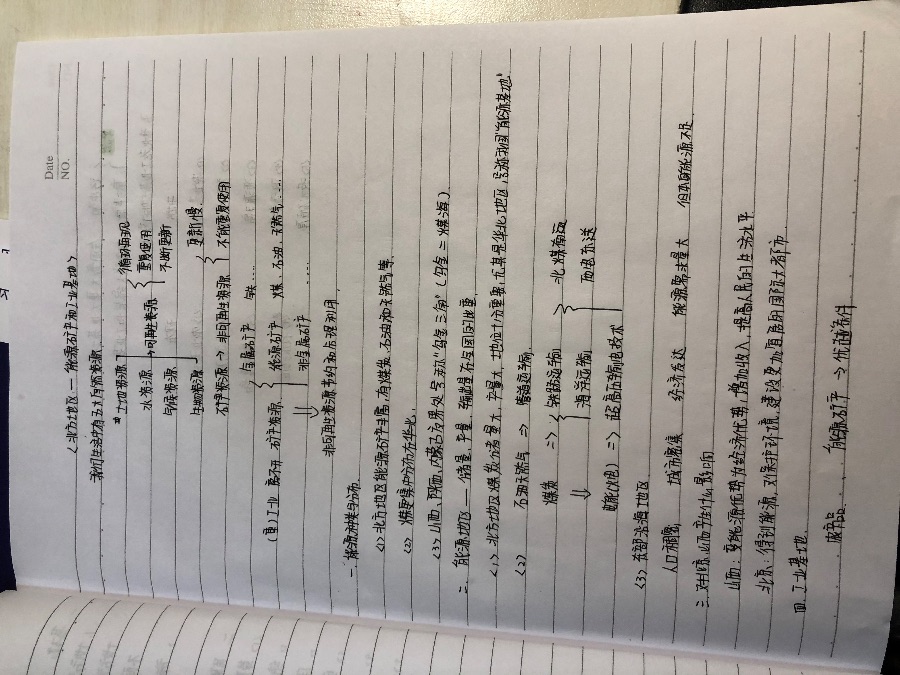 Date
NO.
<北方地区 — 能源矿产和工业基地>
我们生活中有五大自然资源.
土地资源. 循环再现
水资源 → 可再生资源 重复使用
气候资源 不断更新
生物资源 更新慢.
矿产资源 → 非可再生资源 不能重复使用
金属矿产 铁....
(重) 工业 离不开 矿产资源 能源矿产 煤、石油、天然气....
⇓ 非金属矿产 ....
非可再生资源节约和合理利用.
一、能源种类与分布.
<1> 北方地区能源矿产丰富, 有煤炭、石油和天然气等.
<2> 煤炭集中分布在华北.
<3> 山西、陕西、内蒙古交界处号称“乌金三角”(乌金 = 煤海)
二、能源地区 — 储量、产量、输出量在全国的比重.
<1> 北方地区煤炭储量大, 产量大, 地位十分重要, 尤其是华北地区, 号称我国“能源基地”
<2> 石油天然气 ⇒ 管道运输.
煤炭 => 铁路运输 北煤南运
⇓ 海洋运输 西电东送
电能(火电) => 超高压输电技术
<3> 东部沿海地区
人口稠密 城市密集 经济发达 能源需求量大 但本身能源不足
三、对北京、山西产生什么影响
山西: 变能源优势为经济优势, 增加收入, 提高人民的生活水平
北京: 得到能源, 对保护环境, 建设更加宜居的国际大都市
四、工业基地.
能源矿产 → 优越条件